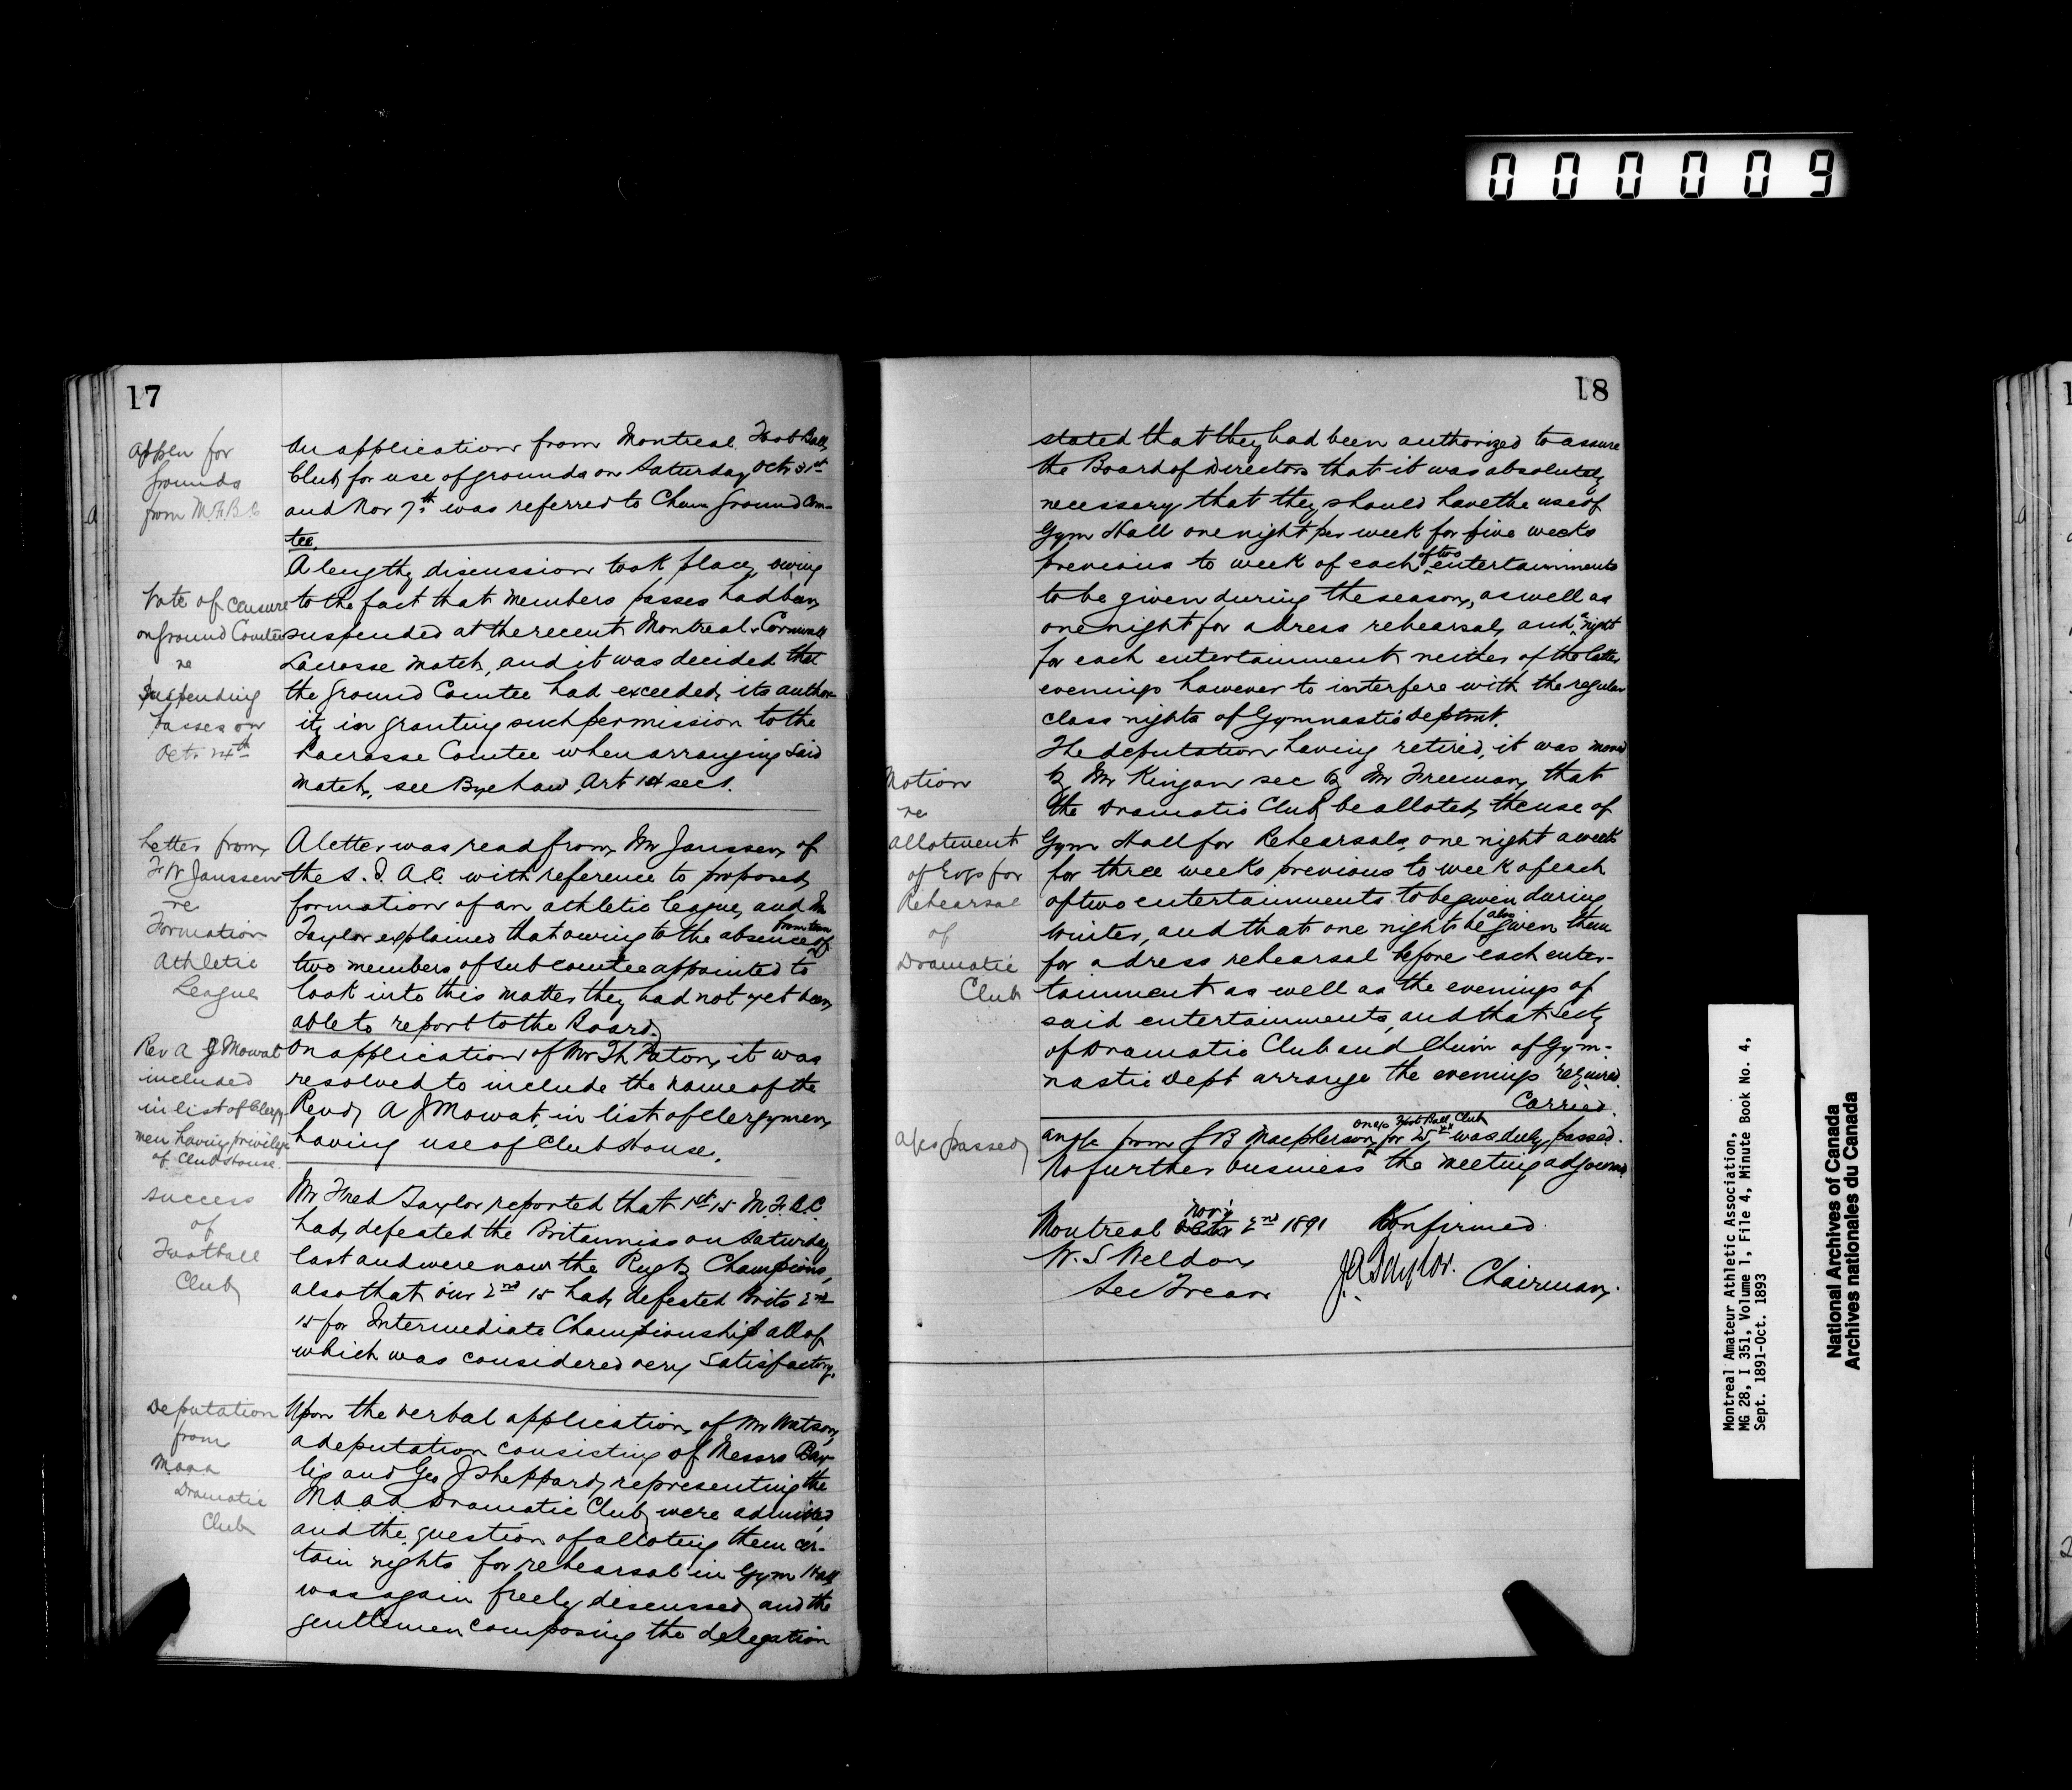 000009
17
Appln for
Grounds
from M.F.B.C
An application from Montreal Foot Ball
Club for use of grounds on Saturday Oct 31st
and Nov 7th was referred to Chairn Ground Com-
tee.
Vote of Censure
on Ground Comtee
re
Suspending
passes on
Oct. 24th
A lengthy discussion took place, owing
to the fact that members passes had been
suspended at the recent Montreal v Cornwall
Lacrosse match, and it was decided that
the Ground Comtee had exceeded its author-
ity in granting such permission to the
Lacrosse Comtee when arranging said
match, see Bye Law, Art 14 sec 1.
Letter from
F W Janssen
re
Formation
Athletic
League
A letter was read from Mr Janssen of
the S. I. A. C. with reference to proposed
formation of an athletic league, and Mr
Taylor explained that owing to the absence from town of
two members of sub comtee appointed to
look into this matter they had not yet been
able to report to the Board.
Rev A J Mowat
included
in list of Clergy-
men having privilege
of Club House.
On application of Mr Th Paton, it was
resolved to include the name of the
Revd A J Mowat, in list of clergymen
having use of Club House.
Success
of
Football
Club
Mr Fred Taylor reported that 1st 15 M.F.B.C
had defeated the Britannias on Saturday
last and were now the Rugby Champions,
also that our 2nd 15 had defeated Brits 2nd
15 for Intermediate Championship all of
which was considered very satisfactory.
Deputation
from
M.A.A.A
Dramatic
Club
Upon the verbal application of Mr Watson
a deputation consisting of Messrs Bay-
lis and Geo J Sheppard, representing the
M.A.A.A Dramatic Club were admitted
and the question of alloting them cer-
tain nights for rehearsal in Gym Hall
was again freely discussed, and the
gentlemen composing the delegation
18
stated that they had been authorized to assure
the Board of Directors that it was absolutely
necessary that they should have the use of
Gym Hall one night per week for five weeks
previous to week of each of two entertainments
to be given during the season, as well as
one night for a dress rehearsal, and a night
for each entertainment neither of the latter
evenings however to interfere with the regular
class nights of Gymnastic Deptmt.
The deputation having retired, it was moved
by Mr Kingan sec by Mr Freeman, that
Motion
re
allotment
of Evgs for
Rehearsal
of
Dramatic
Club
the Dramatic Club be alloted, the use of
Gym Hall for Rehearsals, one night a week
for three weeks previous to week of each
of two entertainments to be given during
winter, and that one night be also given them
for a dress rehearsal before each enter-
tainment as well as the evenings of
said entertainments, and that Secty
of Dramatic Club and Chairn of Gym-
nastic Dept arrange the evenings required.
Carried.
a/cs passed
from J B Macpherson on a/c Foot Ball Club for was duly passed.
No further business the meeting adjourned.
Montreal Octr Nov'r 2nd 1891 Confirmed.
W. S Weldon
Sec Treas
J.A. Taylor. Chairman.
Montreal Amateur Athletic Association,
MG 28, I 351, Volume 1, File 4, Minute Book No. 4,
Sept. 1891-Oct. 1893
National Archives of Canada
Archives nationales du Canada